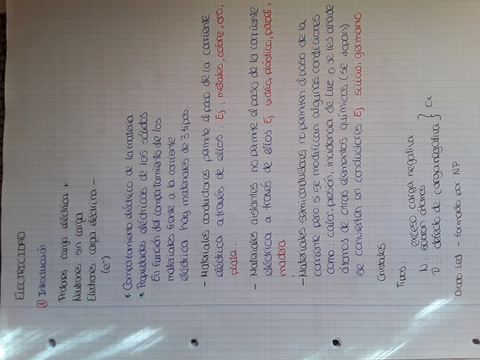 ELECTRICIDAD
① Introducción
Protones carga eléctrica +
Neutrones sin carga
Electrones carga eléctrica -
(e⁻)
* Comportamiento eléctrico de la materia
* Propiedades eléctricas de los sólidos
En función del comportamiento de los
materiales frente a la corriente
eléctrica hay materiales de 3 tipos.
- Materiales conductores permite el paso de la corriente
eléctrica a través de ellos. Ej: metales, cobre, oro,
plata.
- Materiales aislantes no permite el paso de la corriente
eléctrica a través de ellos Ej vidrio, plástico, papel,
madera
- Materiales semiconductores no permiten el paso de la
corriente pero si se modifican algunas condiciones
como: calor, presión, incidencia de luz o se les añade
átomos de otros elementos químicos (se dopan)
se convierten en conductores Ej silicio, germanio
Cristales
Tipos: exceso carga negativa
N: átomos
P: defecto de carga negativa } Ex
Diodo Led - formado por NP